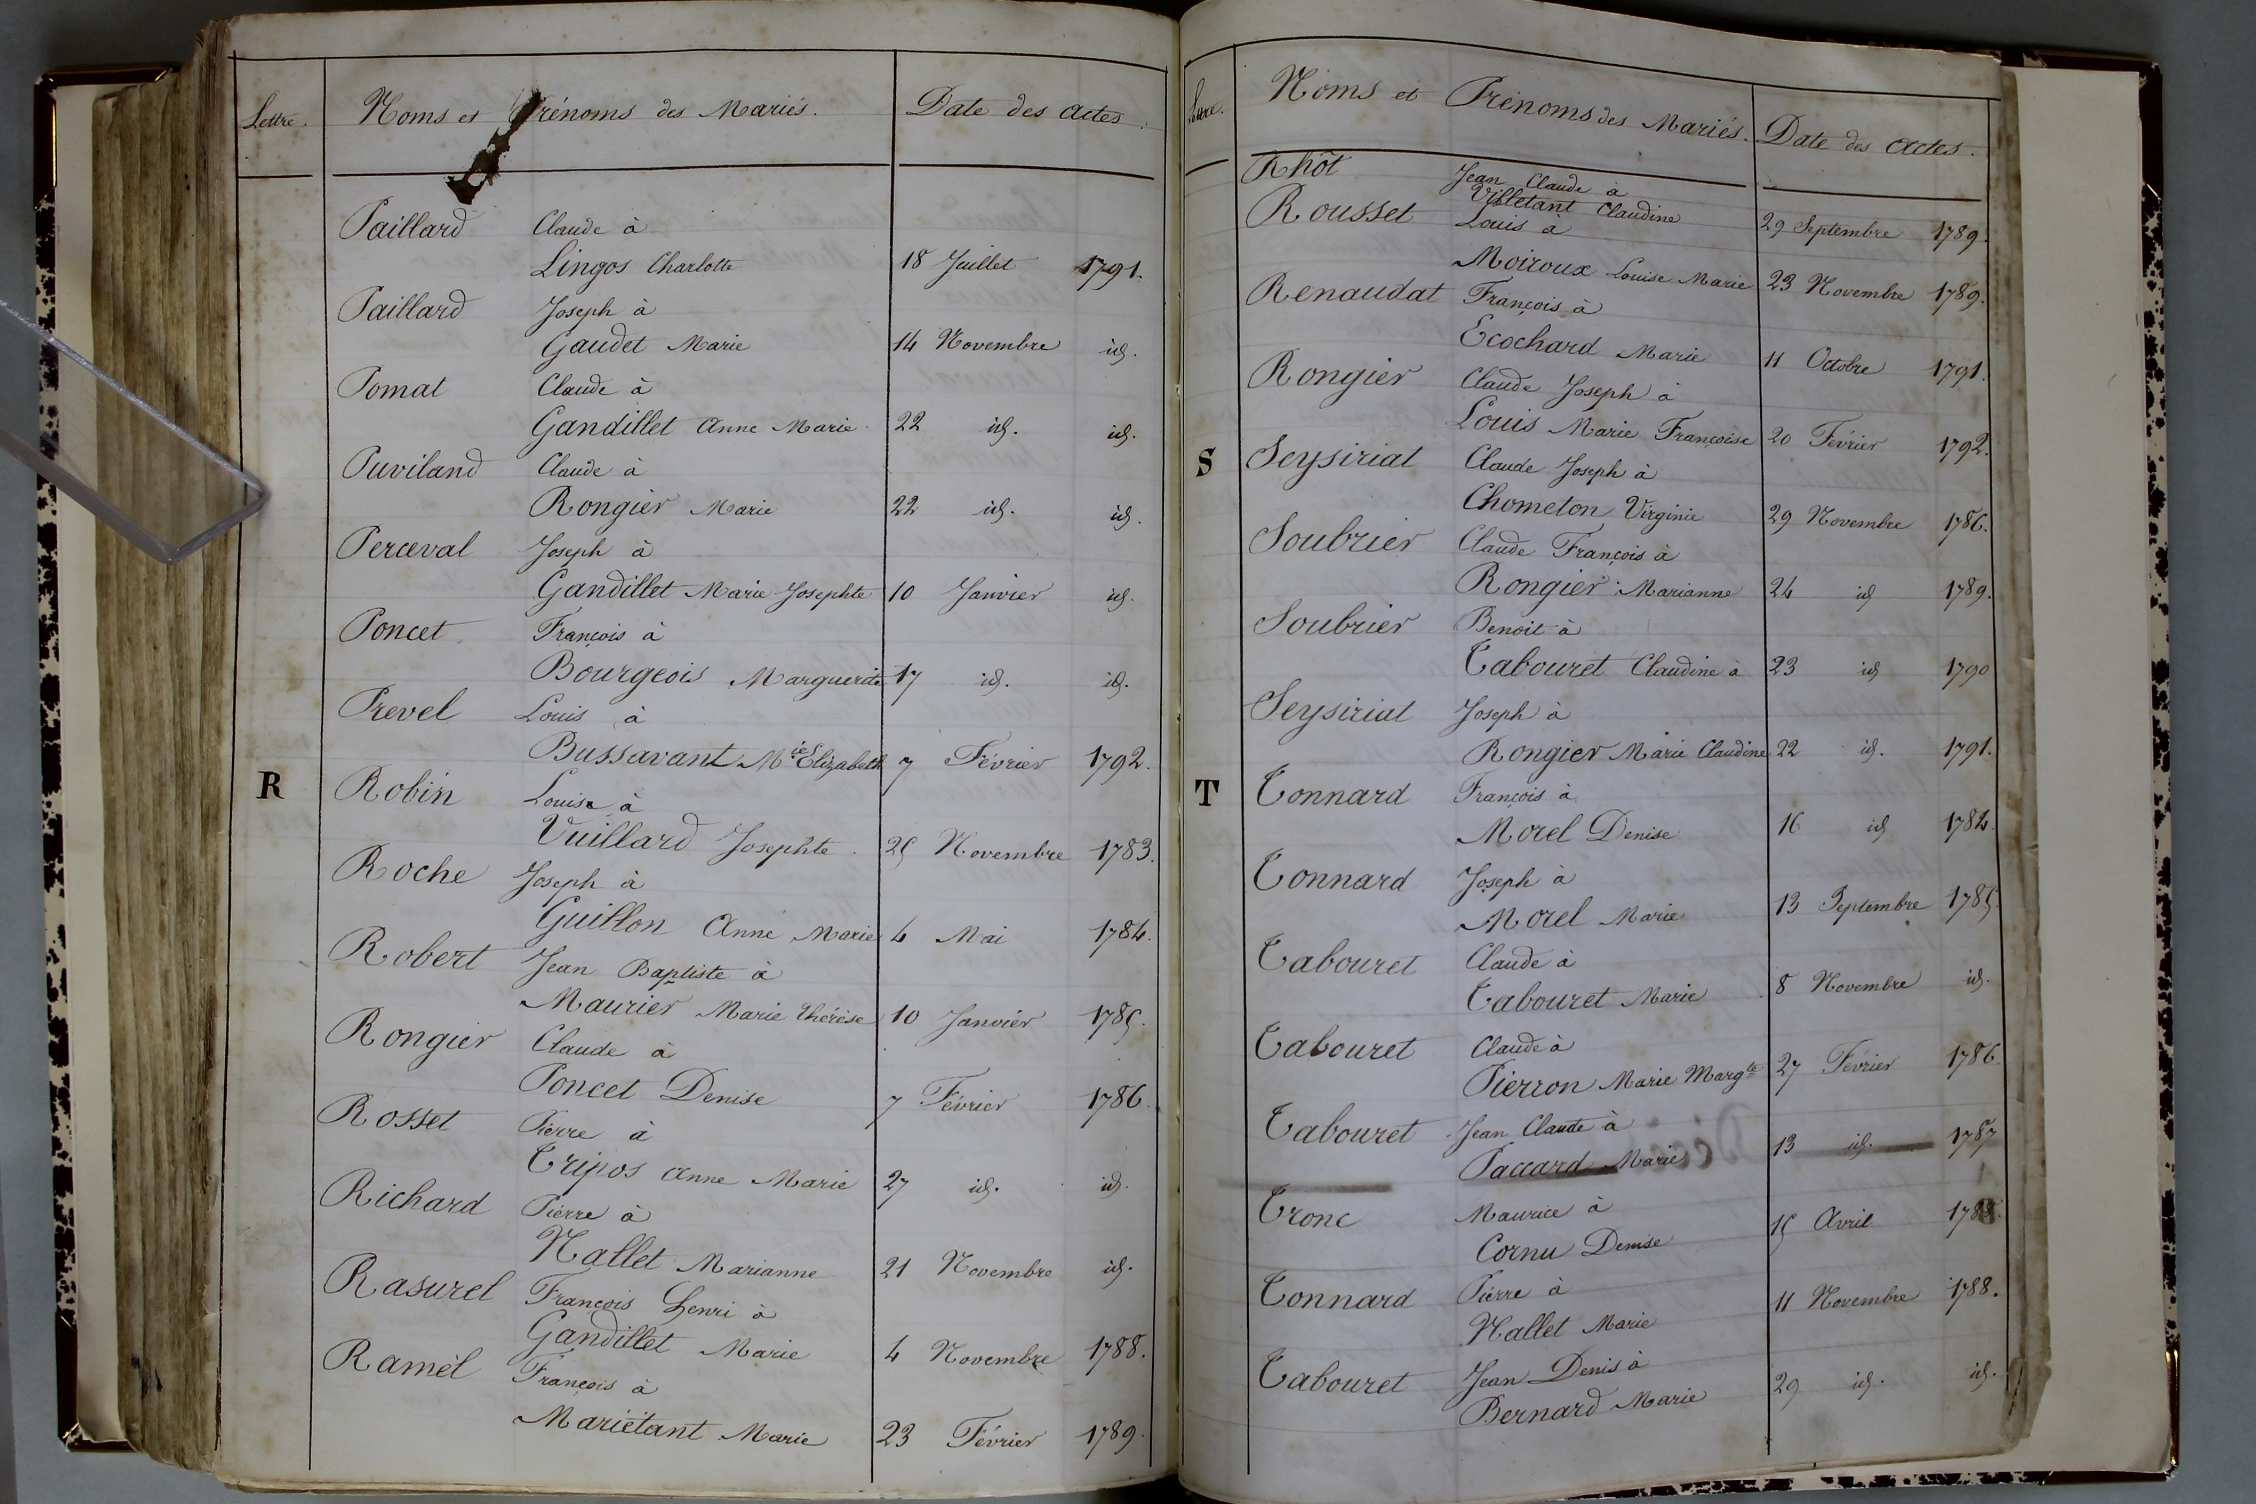 Lettre. Noms et Prénoms des Mariés. Date des actes.
Paillard Claude à
Lingos Charlotte 18 Juillet 1791.
Paillard Joseph à
Gaudet Marie 14 Novembre id.
Pomat Claude à
Gandillet Anne Marie 22 id. id.
Puviland Claude à
Rongier Marie 22 id. id.
Perceval Joseph à
Gandillet Marie Josephte 10 Janvier id.
Poncet François à
Bourgeois Marguerite 17 id. id.
Prevel Louis à
Bussavant Mie Elizabeth 7 Février 1792.
R Robin Louise à
Vuillard Josephte. 25 Novembre 1783.
Roche Joseph à
Guillon Anne Marie 4 Mai 1784.
Robert Jean Baptiste à
Maurier Marie Thérèse 10 Janvier 1785.
Rongier Claude à
Poncet Denise 7 Février 1786.
Rosset Pierre à
Tripos Anne Marie 27 id. id.
Richard Pierre à
Nallet Marianne 21 Novembre id.
Rasurel François Henri à
Gandillet Marie 4 Novembre 1788.
Ramel François à
Mariétant Marie 23 Février 1789.
Lettre. Noms et Prénoms des Mariés. Date des actes.
Rhôt Jean Claude à
Villetant Claudine 29 Septembre 1789.
Rousset Louis à
Moiroux Louise Marie 23 Novembre 1789.
Renaudat François à
Ecochard Marie 11 Octobre 1791.
Rongier Claude Joseph à
Louis Marie Françoise 20 Février 1792.
S Seysiriat Claude Joseph à
Chometon Virginie 29 Novembre 1786.
Soubrier Claude François à
Rongier Marianne 24 id 1789.
Soubrier Benoit à
Tabouret Claudine à 23 id 1790
Seysiriat Joseph à
Rongier Marie Claudine 22 id. 1791.
T Tonnard François à
Morel Denise 16 id 1784.
Tonnard Joseph à
Morel Marie 13 Septembre 1785.
Tabouret Claude à
Tabouret Marie 8 Novembre id.
Tabouret Claude à
Pierron Marie Margte 27 Février 1786.
Tabouret Jean Claude à
Paccard Marie 13 id. 1787
Tronc Maurice à
Cornu Denise 15 Avril 1788.
Tonnard Pierre à
Nallet Marie 11 Novembre 1788.
Tabouret Jean Denis à
Bernard Marie 29 id. id.